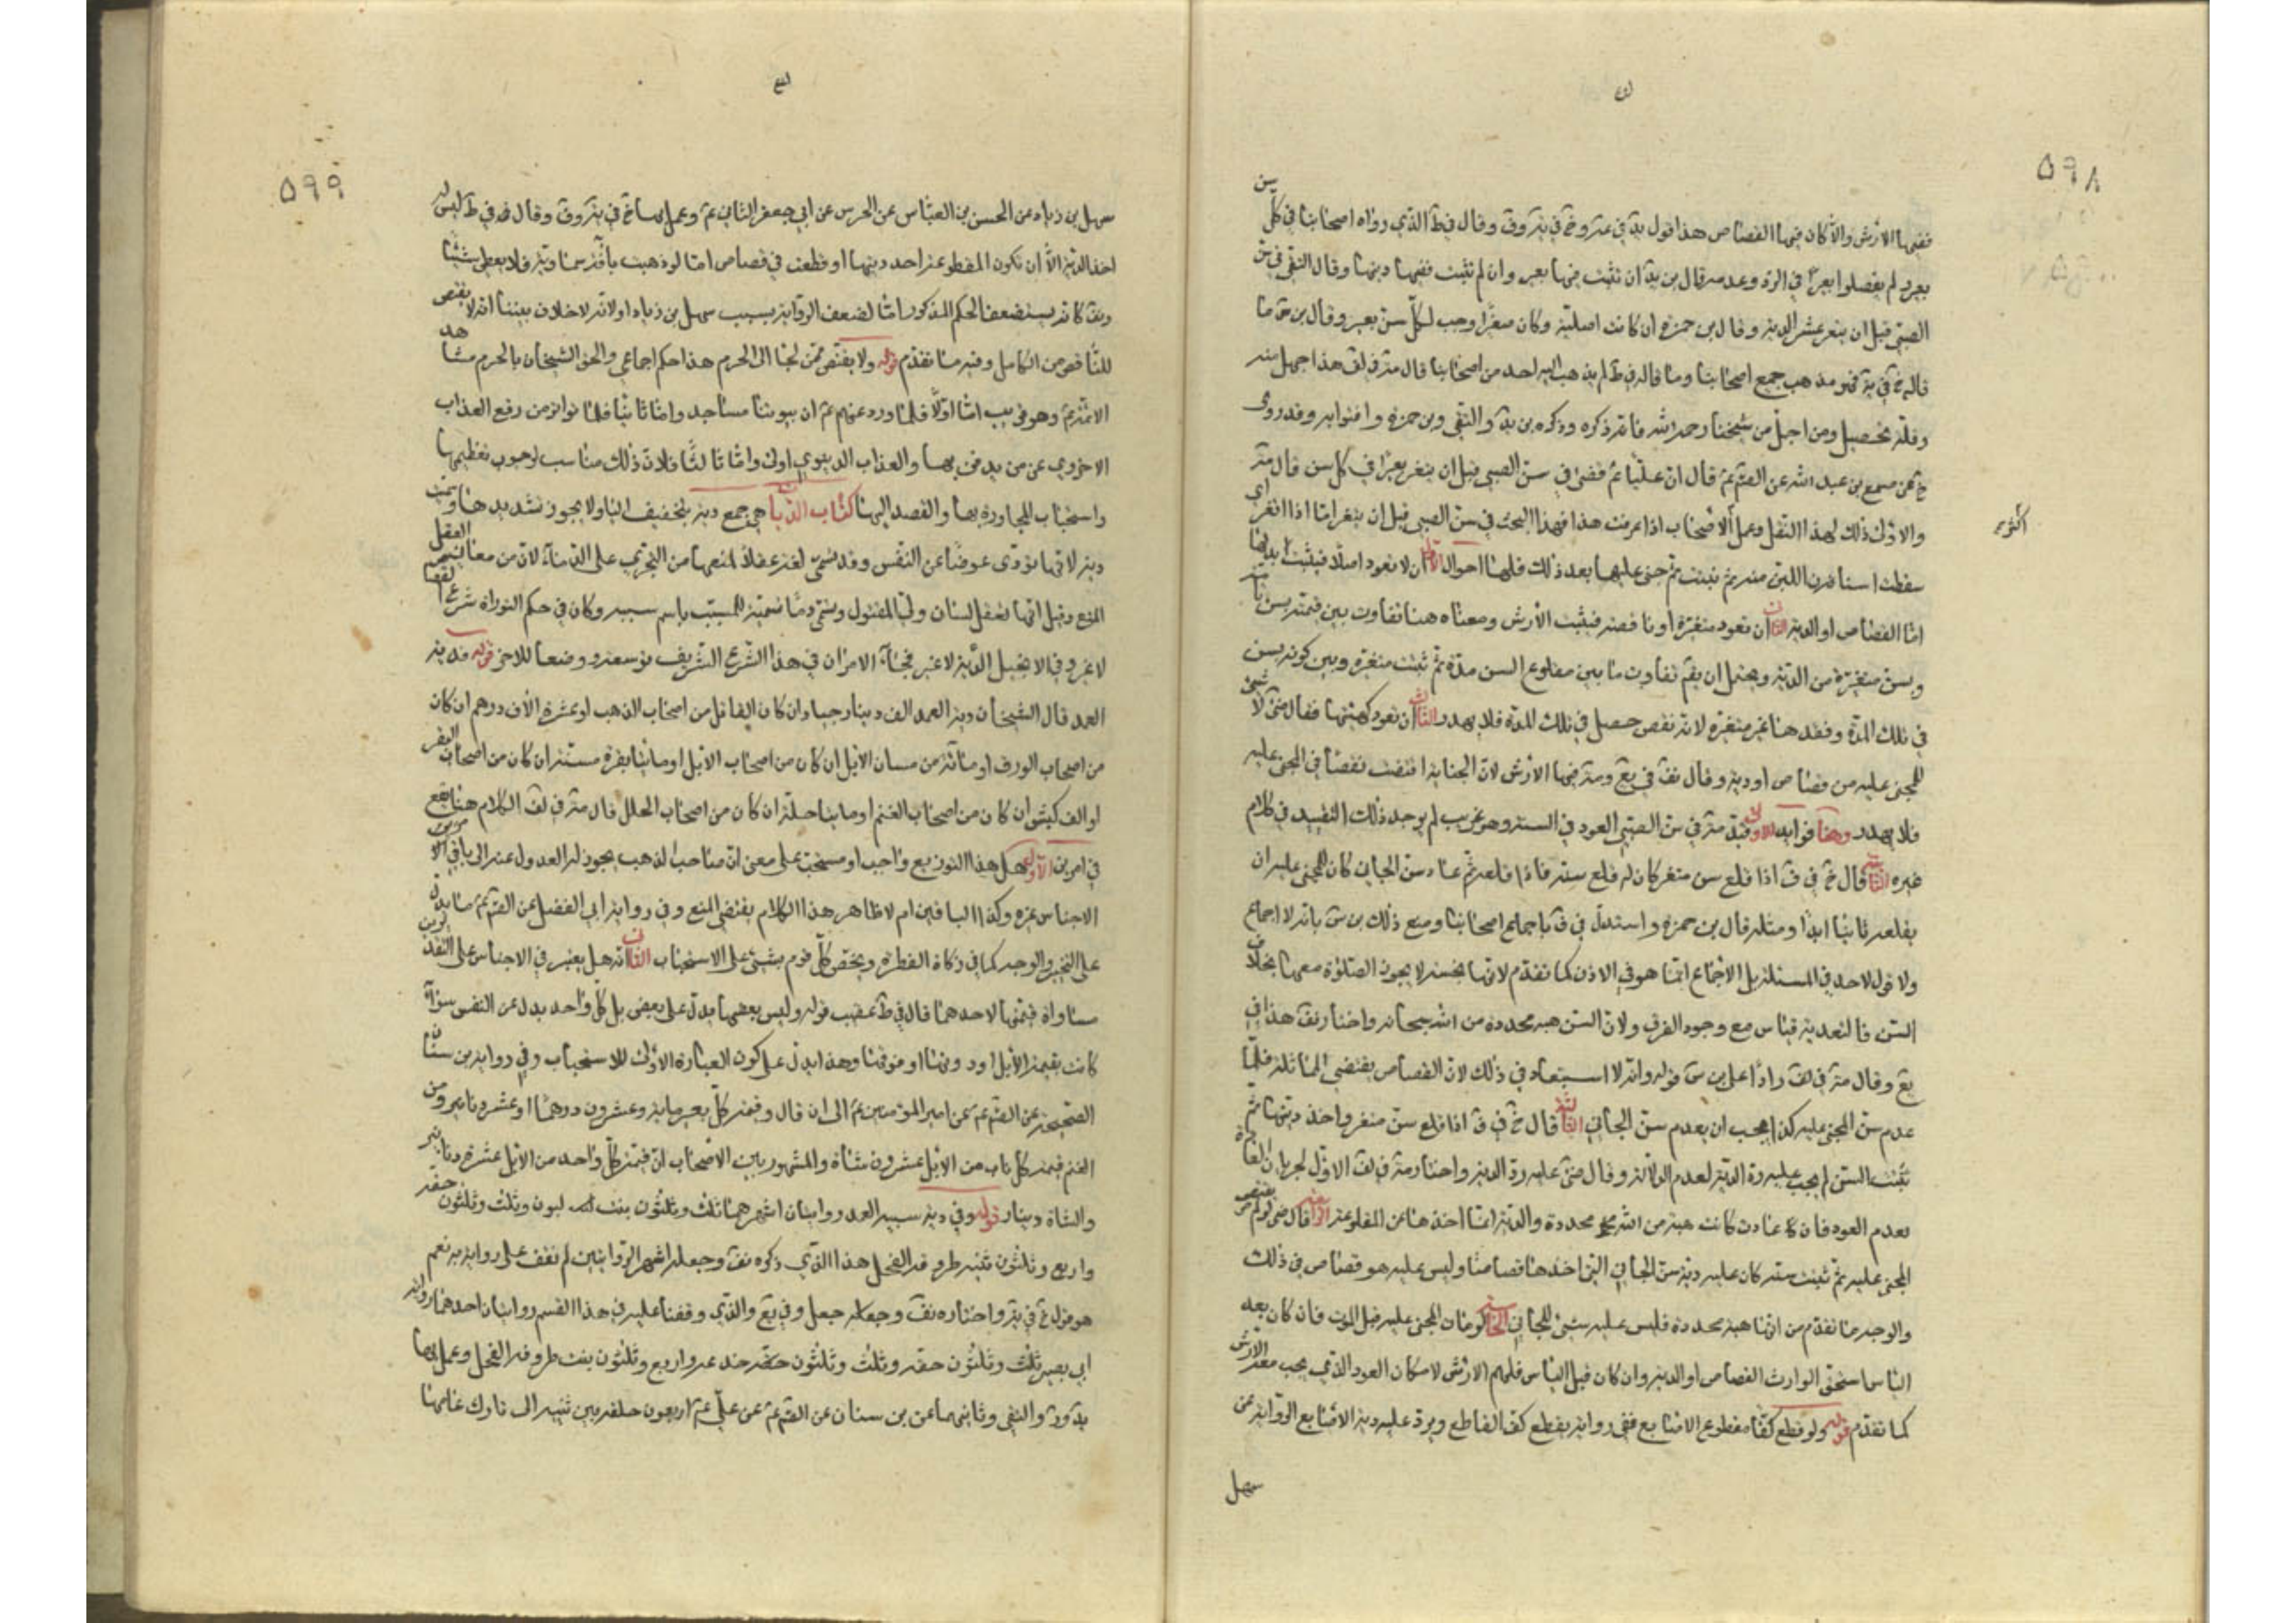 ٥٩٨
ففيها الارش والا كان فيها القصاص هذا قول يه في عه و خ في يه وق وقال في ط الذي رواه اصحابنا في كل سن
بعير ولم يفصلوا بعيرا في الرد وعدمه قال بن يد ان تنبت فيها بعير وان لم تنبت ففيها ديتها وقال التقي في سن
الصبي قبل ان يثغر عشر الدية وقال بن حمزة ان كانت اصلية وكان مثغرا وجب لكل سن بعير وقال بن س ما
قاله خ في يه هو مذهب جميع اصحابنا وما قاله في ط لم يذهب اليه احد من اصحابنا قال مة في لف هذا جهل منه
وقلة تحصيل ومن اجل من شيخنا رحمه الله فانه ذكره وذكره بن يد والتقي وبن حمزة وافتوا به وقد روى
خ عن مسمع بن عبد الله عن الصم عم قال ان عليا عم قضى في سن الصبي قبل ان يثغر بعيرا في كل سن قال مة
والاولى ذلك لهذا النقل وعمل الاصحاب اذا عرفت هذا فهذا البحث في سن الصبي قبل ان يثغر اما اذا اثغر اي
سقطت اسنانه اللبن منه ثم نبتت ثم جنى عليها بعد ذلك فلها احوال الاول ان لا تعود اصلا فيثبت لها
اما القصاص او الدية الثاني ان تعود متغيرة او ناقصة فيثبت الارش ومعناه هنا تفاوت بين قيمته بسن تامة
وبسن متغيرة من الدية ويحتمل ان يقم تفاوت ما بين مقلوع السن مدة ثم تنبت متغيرة وبين كونه بسن
في تلك المدة وفقد هنا غير متغيرة لانه نقص حصل في تلك المدة فلا يهدر الثالث ان تعود كهيئتها فقال لا شيء
للمجنى عليه من قصاص او دية وقال في يع ومة فيها الارش لان الجناية اقتضت نقصا في المجنى عليه
فلا يهدر وهنا فوايد الاولى قيد مة في سن الصبي العود في السنة وهو غريب لم يوجد ذلك التقييد في كلام
غيره الثانية قال خ في ف اذا قلع سن مثغر كان له قلع سنه فاذا قلعه ثم عاد سن الجاني كان للمجنى عليه ان
يقلعه ثانيا ابدا ومثله قال بن حمزة واستدل في ف باجماع اصحابنا ومنع ذلك بن س بانه لا اجماع
ولا قول لاحد في المسئلة بل الاجماع انما هو في الاذن كما تقدم لانها نجسة لا يجوز الصلوة معها بخلاف
السن فالتعدية قياس مع وجود الفرق ولان السن هبة مجددة من الله سبحانه واختاره هذا في
يع وقال مة في لف رادا على بن س قوله وانه لا استبعاد في ذلك لان القصاص يقتضي المماثلة فلما
عدم سن المجنى عليه كذا يجب ان يعدم سن الجاني الثالثة قال خ في ف اذا قلع سن مثغر واخذ ديتها ثم
نبتت السن لم يجب عليه رد الدية لعدم الدلالة وقال عليه رد الدية واختار مة في لف الاول لجريان العادة
بعدم العود فان عادت كانت هبة من الله مجددة والدية انما اخذها عن المقلوعة الرابعة قال لو لم يقتص
المجنى عليه ثم نبتت سنه كان عليه دية سن الجاني التي اخذها قصاصا وليس عليه هو قصاص في ذلك
والوجه ما تقدم من انها هبة مجددة فليس عليه شئ للجاني الخامسة لو مات المجنى عليه قبل الموت فان كان بعد
الياس استحق الوارث القصاص او الدية وان كان قبل الياس فلهم الارش لامكان العود الذي يجب معه الارش
كما تقدم قوله ولو قطع كفا مقطوع الاصابع ففي رواية يقطع كف القاطع ويرد عليه دية الاصابع الرواية عن
سهل
٥٩٩
سهل بن زياد عن الحسن بن العباس عن الحرس عن ابي جعفر الثاني عم وعمل بها خ في يه وق وقال في ط ليس له
اخذ الدية الا ان تكون المقطوعة اخذ ديتها او قطعت في قصاص اما لو ذهبت بآفة سماوية فلا يعطى شيئا
كانه يستضعف الحكم المذكور اما لضعف الرواية بسبب سهل بن زياد او لانه لا خلاف بيننا انه لا يقتص
للناقص من الكامل وفيه ما تقدم قوله ولا يقتص ممن لجأ الى الحرم هذا حكم اجماعي والحق الشيخان بالحرم مشاهد
الائمة عم وهو قريب اما اولا فلما ورد عنهم عم ان بيوتنا مساجد واما ثانيا فلما تواتر من رفع العذاب
الاخروي عن من يدفن بها والعذاب الدنيوي اولى واما ثالثا فلان ذلك مناسب لوجوب تعظيمها
واستحباب المجاورة بها والقصد اليها كتاب الديات هي جمع دية بتخفيف اليا ولا يجوز تشديدها وسميت
دية لانها تؤدى عوضا عن النفس وقد تسمى لغة عقلا لمنعها من التجري على الدماء لان من معاني العقل
المنع وقيل انها تعقل لسان ولي المقتول وتسمى دما تسمية للمسبب باسم سببه وكان في حكم التوراة شرع القصاص
لا غير وفي الانجيل الدية لا غير فجاء الامران في هذا الشرع الشريف توسعة ووضعا للاخر قوله ودية
العمد قال الشيخان دية العمد الف دينار جياد ان كان القاتل من اصحاب الذهب او عشرة الاف درهم ان كان
من اصحاب الورق او مائة من مسان الابل ان كان من اصحاب الابل او مائتا بقرة مسنة ان كان من اصحاب البقر
او الف كبش ان كان من اصحاب الغنم او مايتا حلة ان كان من اصحاب الحلل قال مة في لف الكلام هنا يقع
في امرين الاول هل هذا التوزيع واجب او مستحب على معنى ان صاحب الذهب يجوز له العدول عنه الى باقي
الاجناس غيره وكذا الباقين ام لا ظاهر هذا الكلام يقتضي المنع وفي رواية ابي الفضل عن الصم عم ما يدل
على التخيير والوجه كما في زكاة الفطرة ويختص كل قوم بشئ على الاستحباب الثاني انه هل يعتبر في الاجناس على النقدين
مساواة قيمتها لاحدهما قال في ط عقيب قوله وليس بعضها بدل على بعض بل كل واحد بدل عن النفس سواء
كانت بقيمة الابل او دونها او فوقها وهذا يدل على كون العبارة الاولى للاستحباب وفي رواية بن سنان
الصحيحة عن الصم عم عن امير المؤمنين عم الى ان قال وقيمة كل بعير ماية وعشرون درهما او عشرة دنانير ومن
الغنم قيمة كل ناب من الابل عشرون شاة والمشهور بين الاصحاب ان قيمة كل واحد من الابل عشرة دنانير
والشاة دينار قوله وفي دية شبيه العمد روايتان اشهرهما ثلث وثلثون بنت لبون وثلث وثلثون حقة
واربع وثلثون ثنية طروقة الفحل هذا الذي ذكره وجعله اشهر الروايتين لم نقف على رواية به نعم
هو قول خ في يه واختاره وجعله جعل وفي يع والذي وقفنا عليه في هذا القسم روايتان احدهما رواية
ابي بصير ثلث وثلثون حقة وثلث وثلثون جذعة واربع وثلثون بنت طروقة الفحل وعمل بها
والتقي وثانيهما عن بن سنان عن الصم عم عن علي عم اربعون خلفة بين ثنية الى بازل عامها